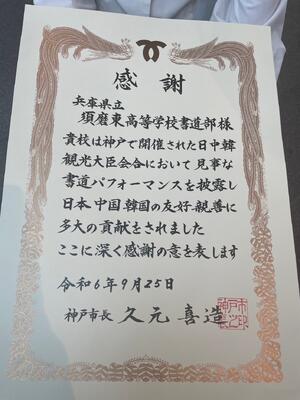 感謝
兵庫県立
須磨東高等学校書道部様
貴校は神戸で開催された日中韓
観光大臣会合において見事な
書道パフォーマンスを披露し
日本、中国、韓国の友好親善に
多大の貢献をされました
ここに深く感謝の意を表します
令和6年9月25日
神戸市長 久元喜造
神戸市長之印